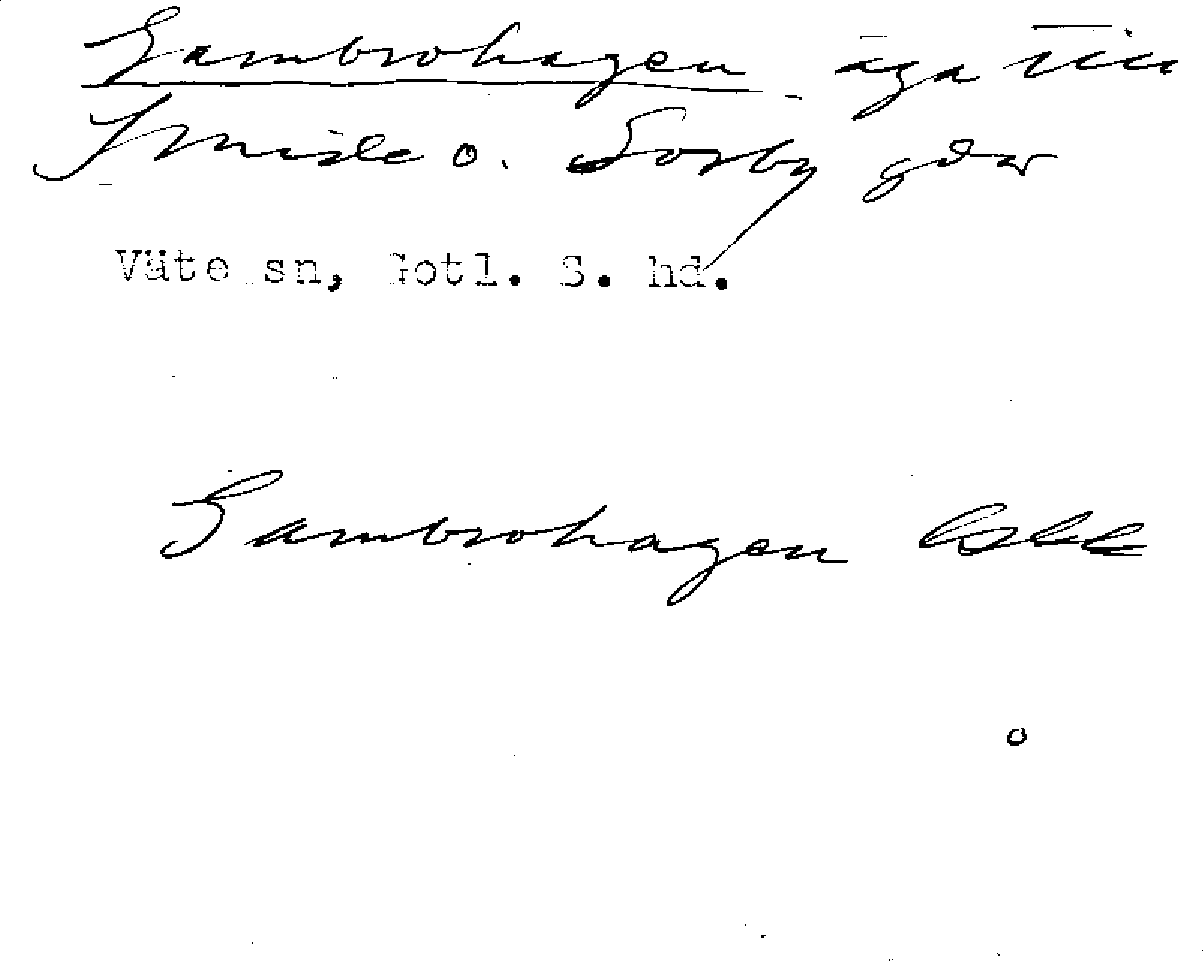 Gambrohagen äga till
o. Sorby gdr
Väte sn, Gotl. S. hd.
Gambrohagen
o